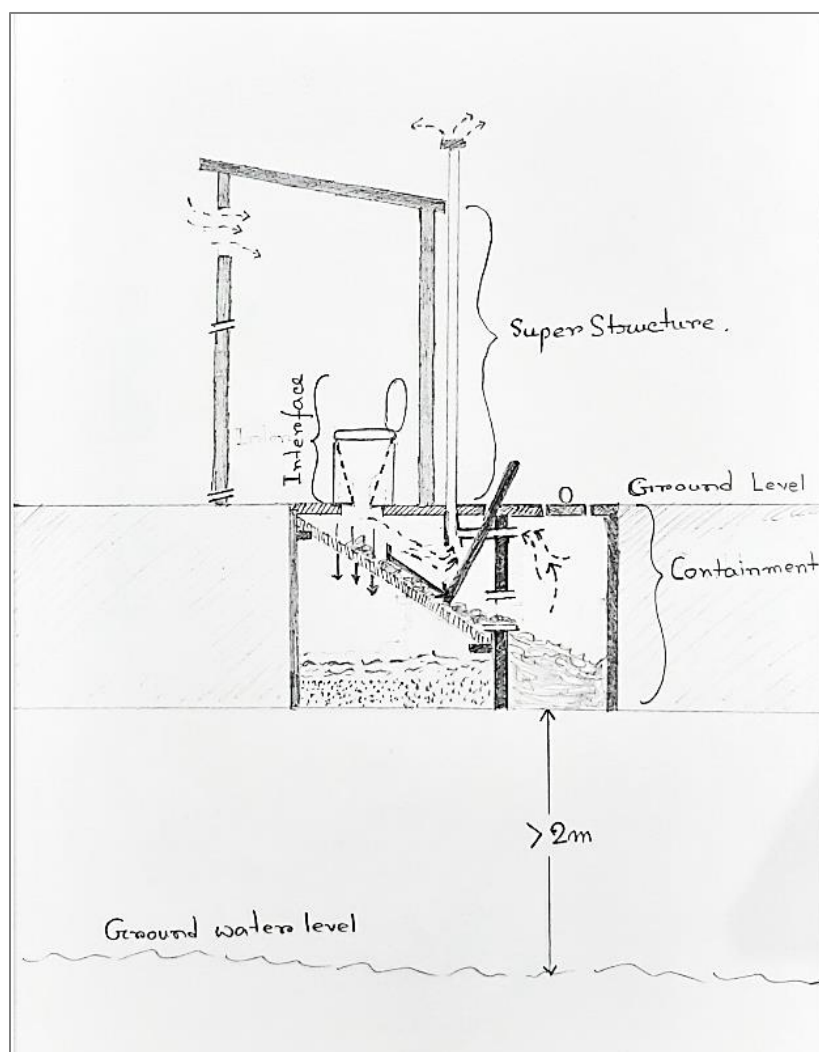 Super Structure.
Interface
Ground Level
Containment
>2m
Ground water level